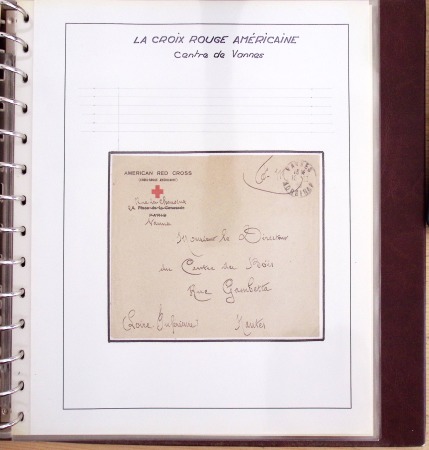 LA CROIX ROUGE AMÉRICAINE
Centre de Vannes
AMERICAN RED CROSS
Vannes
VANNES
MORBIHAN
Monsieur le Directeur
du Centre de Bois
Rue Gambetta
Loire-Inférieure Nantes